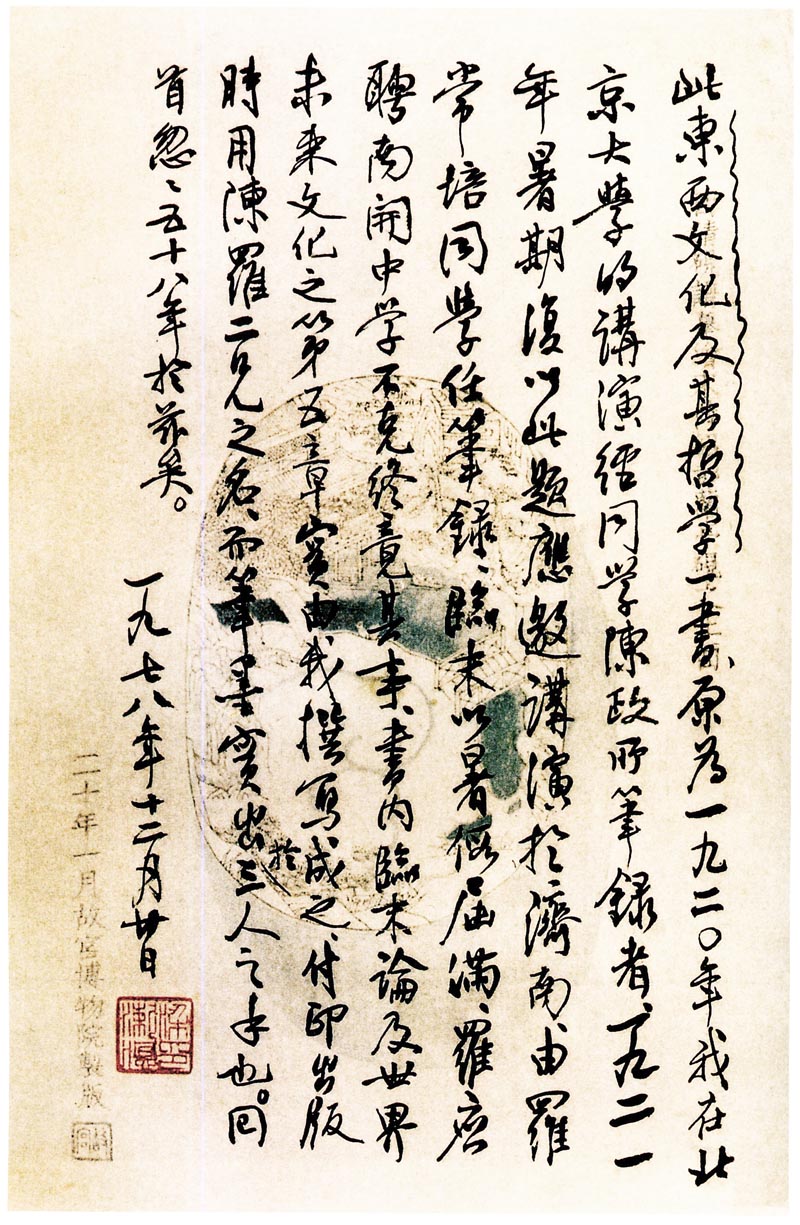 此東西文化及其哲学一書、原為一九二〇年我在北
京大學的講演經同学陳政所筆録者、一九二一
年暑期復以此題應邀講演於濟南、由羅
常培同學任筆録、臨末以暑假屆滿、羅應
聘南開中学不克終竟其事、書内臨末論及世界
未来文化之第五章實由我撰寫成之、付印出版
時用陳羅二兄之名、而筆墨實出於三人之手也。回
首忽、五十八年於茲矣。
一九七八年十二月廿日
梁漱溟印
二十年一月故宮博物院製版